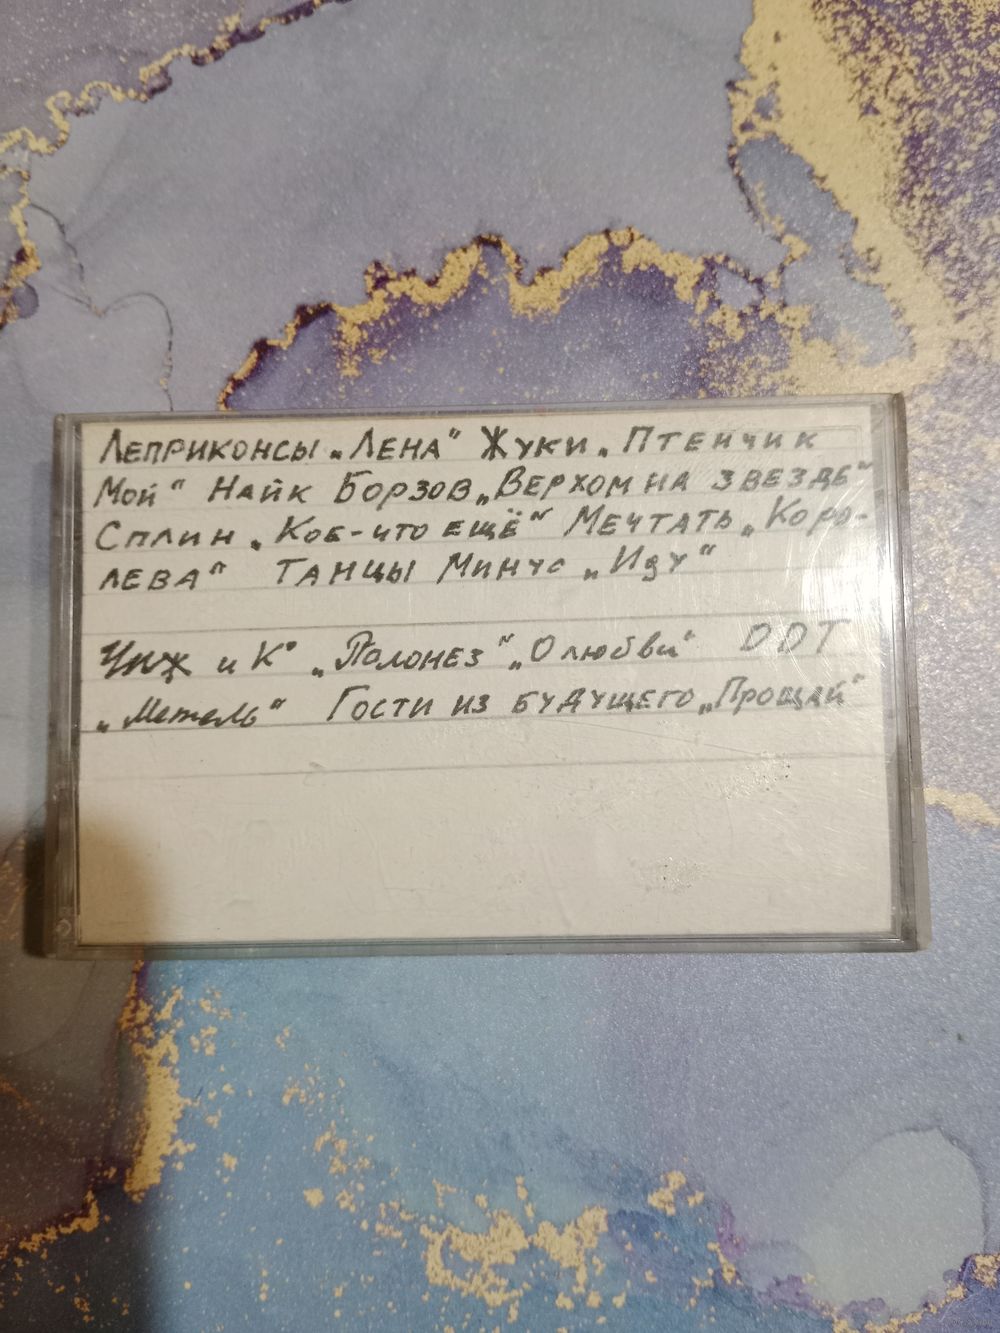 Леприконсы „Лена“ Жуки „Птенчик
мой“ Найк Борзов „Верхом на звезде“
Сплин „Кое-что ещё“ Мечтать „Коро-
лева“ Танцы Минус „Иду“
Чиж и К° „Полонез“ „О любви“ DDT
„Метель“ Гости из будущего „Прощай“